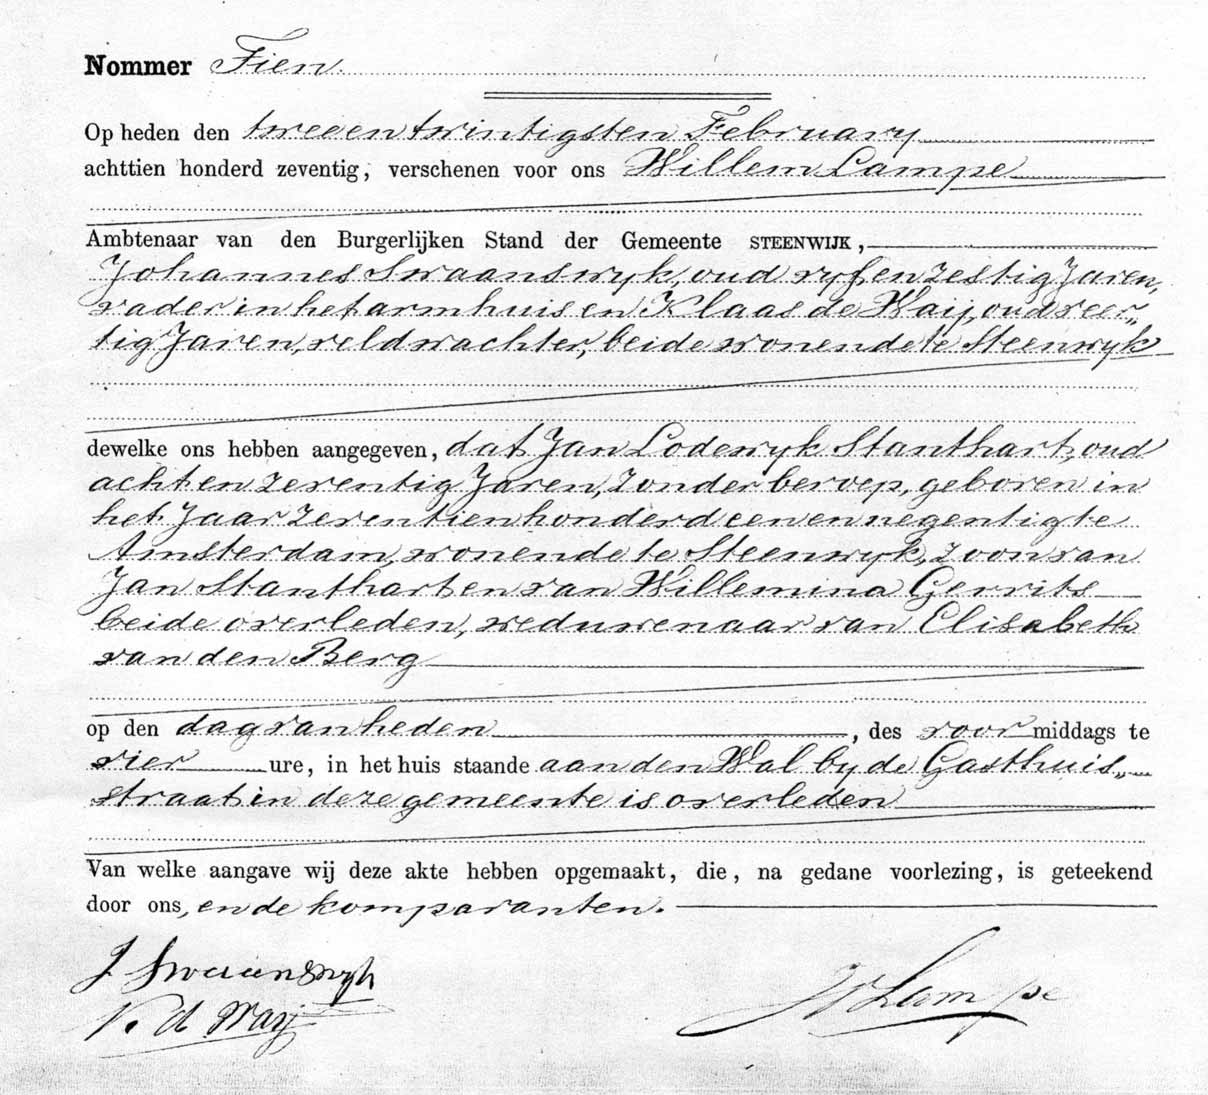 Nommer Tien.
Op heden den tweeentwintigsten February
achttien honderd zeventig, verschenen voor ons Willem Lampe
Ambtenaar van den Burgerlijken Stand der Gemeente STEENWIJK,
Johannes Swaanswyk, oud vyf en zestig Jaren,
vader in het armhuis en Klaas de Waij, oud veer„
tig Jaren, veldwachter, beide wonende te Steenwyk
dewelke ons hebben aangegeven, dat Jan Lodewyk Stanthart, oud
acht en zeventig Jaren, zonder beroep, geboren in
het Jaar zeventien honderd een en negentig te
Amsterdam, wonende te Steenwyk, zoon van
Jan Stanthart en van Willemina Gerrits
beide overleden, weduwenaar van Elisabeth
van den Berg
op den dag van heden, des voormiddags te
vier ure, in het huis staande aan den Wal by de Gasthuis„
straat in deze gemeente is overleden
Van welke aangave wij deze akte hebben opgemaakt, die, na gedane voorlezing, is geteekend
door ons, en de komparanten.
J Swaanswyk
K. d Waij
W Lampe